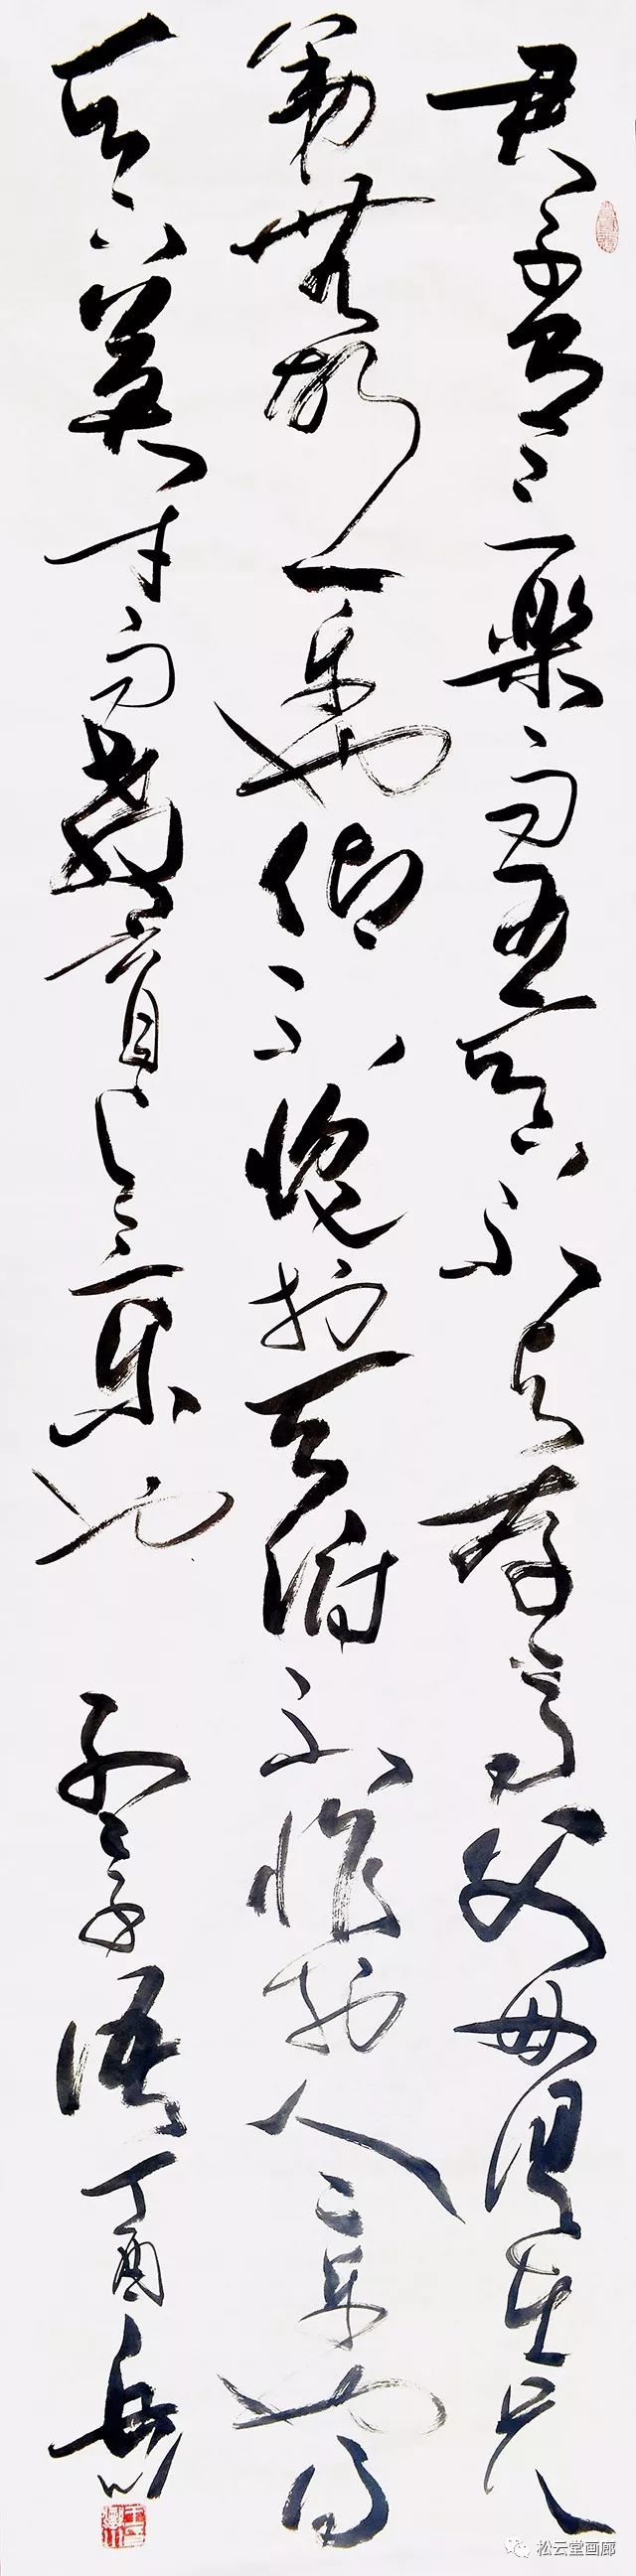 君子有三樂而王天下不与存焉父母俱在兄
弟無故一乐也仰不愧於天俯不怍於人二乐也得
天下英才而教育之三乐也 孟子语 丁酉
松云堂画廊